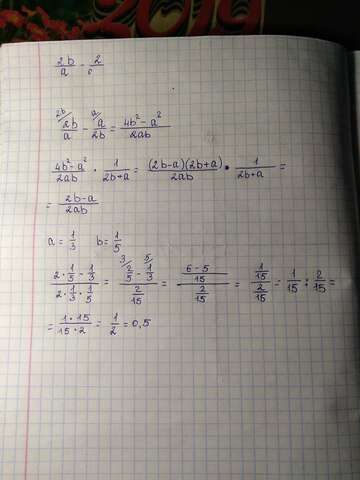 2b/a - 2
2b/a - a/2b = (4b² - a²)/2ab
(4b² - a²)/2ab · 1/(2b+a) = (2b-a)(2b+a)/2ab · 1/(2b+a) =
= (2b-a)/2ab
a = 1/3 b = 1/5
(2·1/5 - 1/3)/(2·1/3·1/5) = (2/5 - 1/3)/(2/15) = ((6-5)/15)/(2/15) = (1/15)/(2/15) = 1/15 : 2/15 =
= (1·15)/(15·2) = 1/2 = 0,5